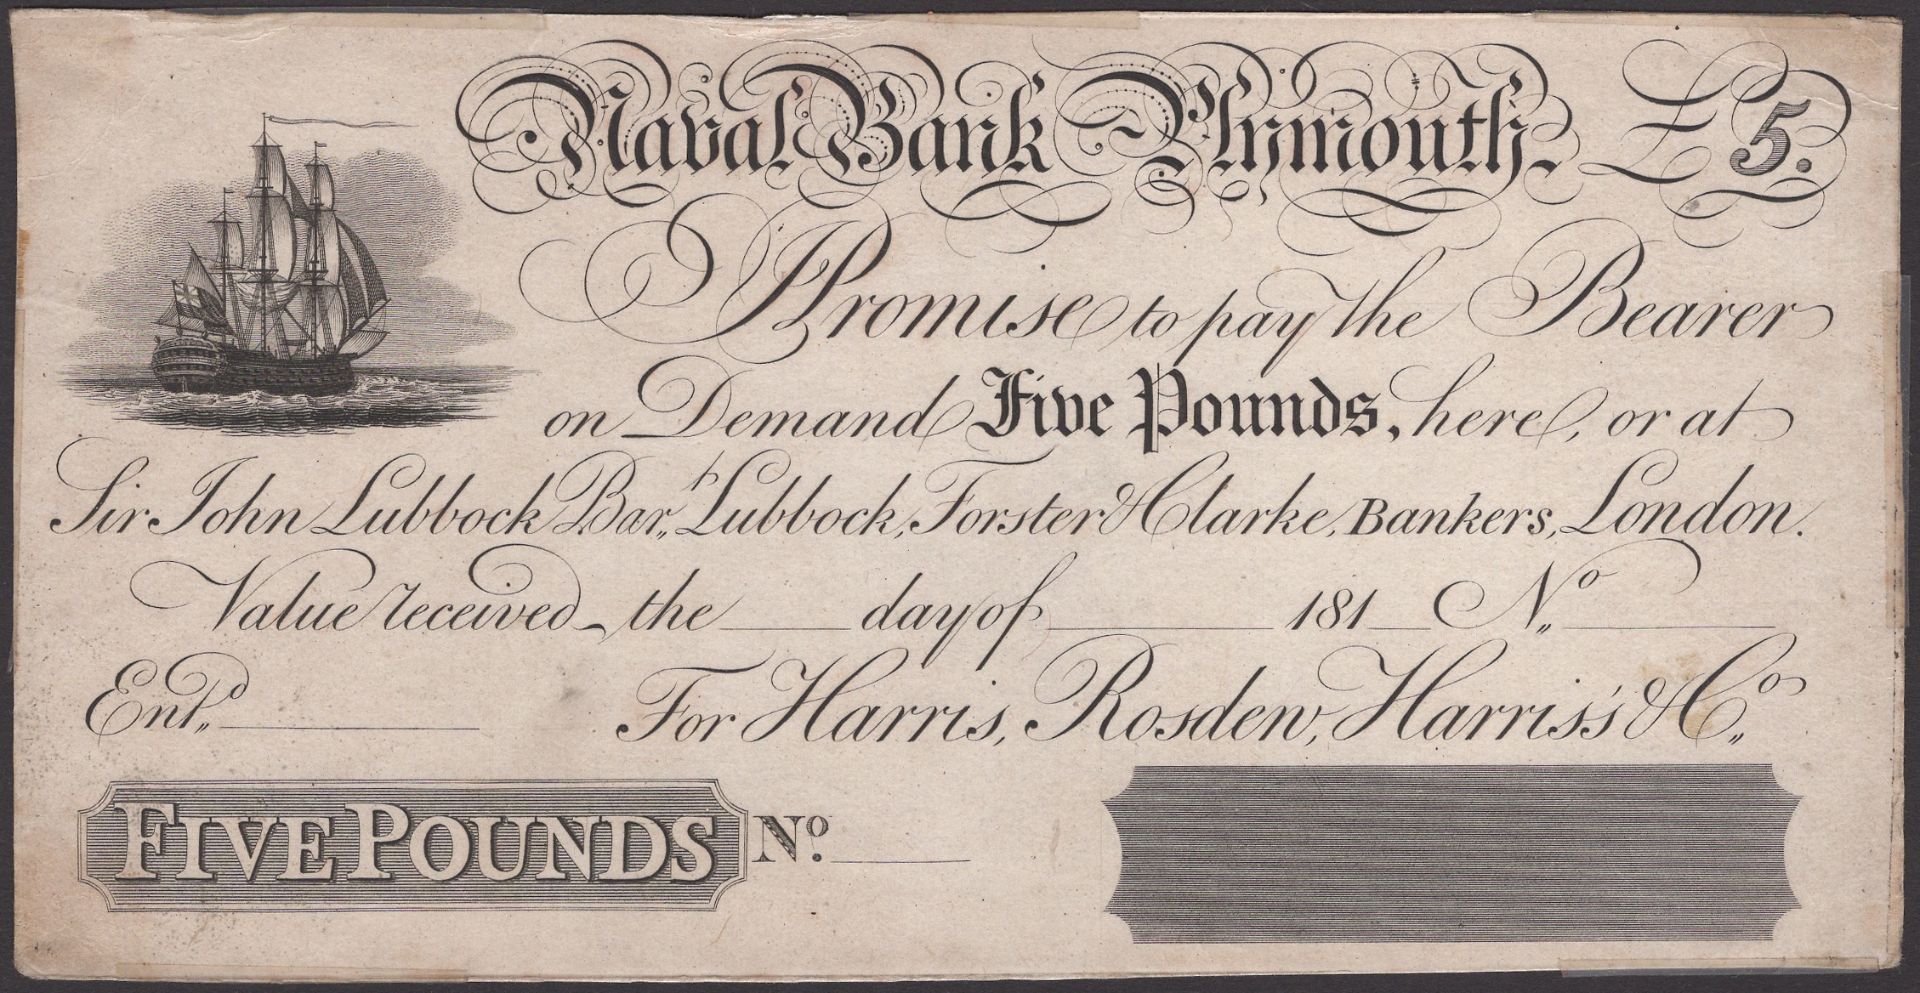 Naval Bank Plymouth. £5.
I Promise to pay the Bearer
on Demand Five Pounds, here, or at
Sir John Lubbock Bar.t Lubbock, Forster & Clarke, Bankers, London.
Value received the ___ day of ___ 181_ No. ___
Ent.d ___ For Harris, Rosdew, Harris's & Co.
FIVE POUNDS No. ___